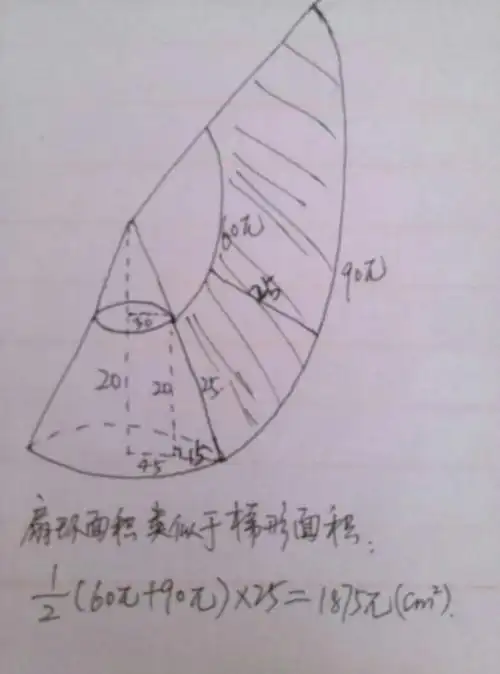 60π
90π
25
30
20
20
25
45
15
扇环面积类似于梯形面积:
1/2(60π+90π)×25=1875π(cm²).